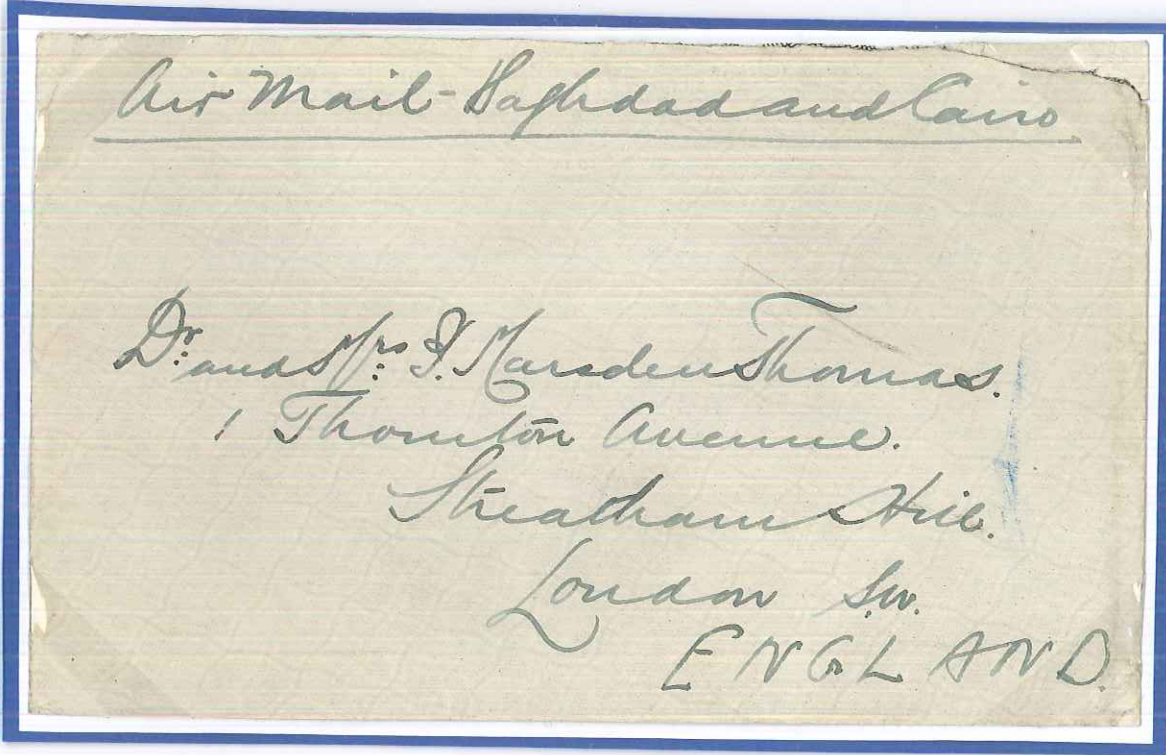 Air Mail - Baghdad and Cairo
Dr. and Mrs. F. Marsden Thomas.
1 Thornton Avenue.
Streatham Hill.
London S.W.
ENGLAND.